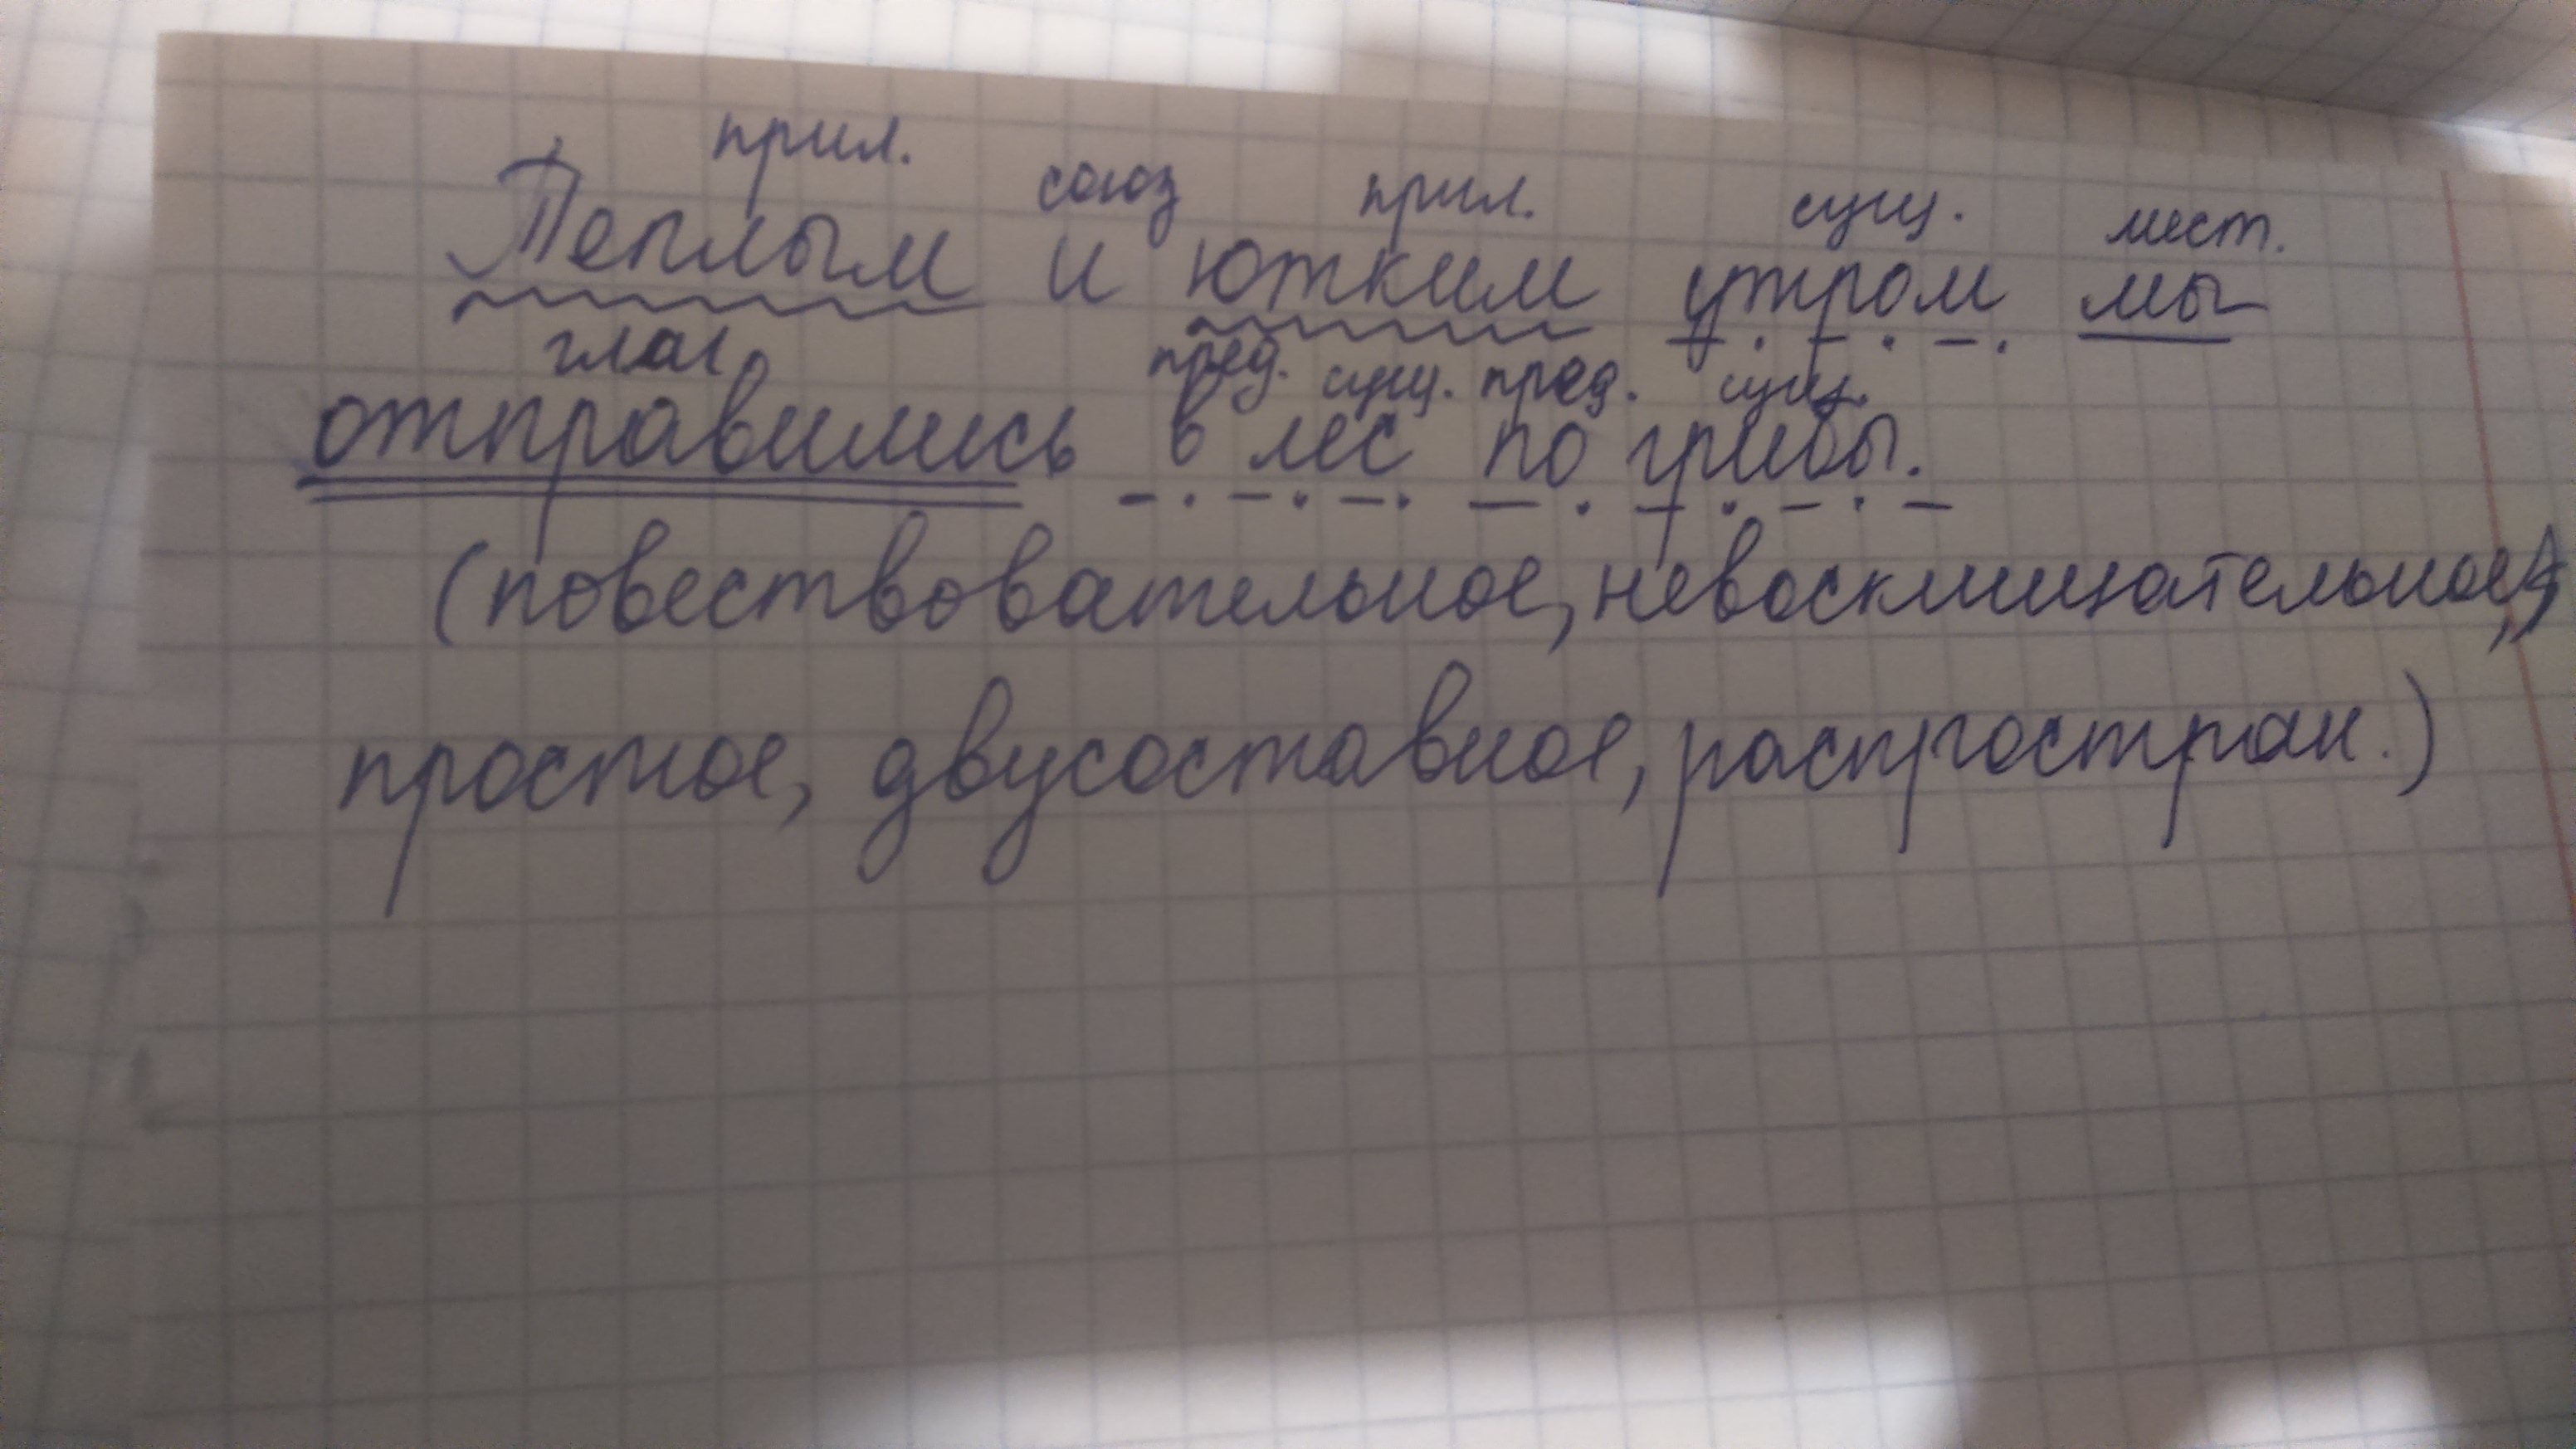 прил. союз прил. сущ. мест.
Теплым и ютким утром мы
глаг. пред. сущ. пред. сущ.
отправились в лес по грибы.
(повествовательное, невосклицательное,
простое, двусоставное, распростран.)